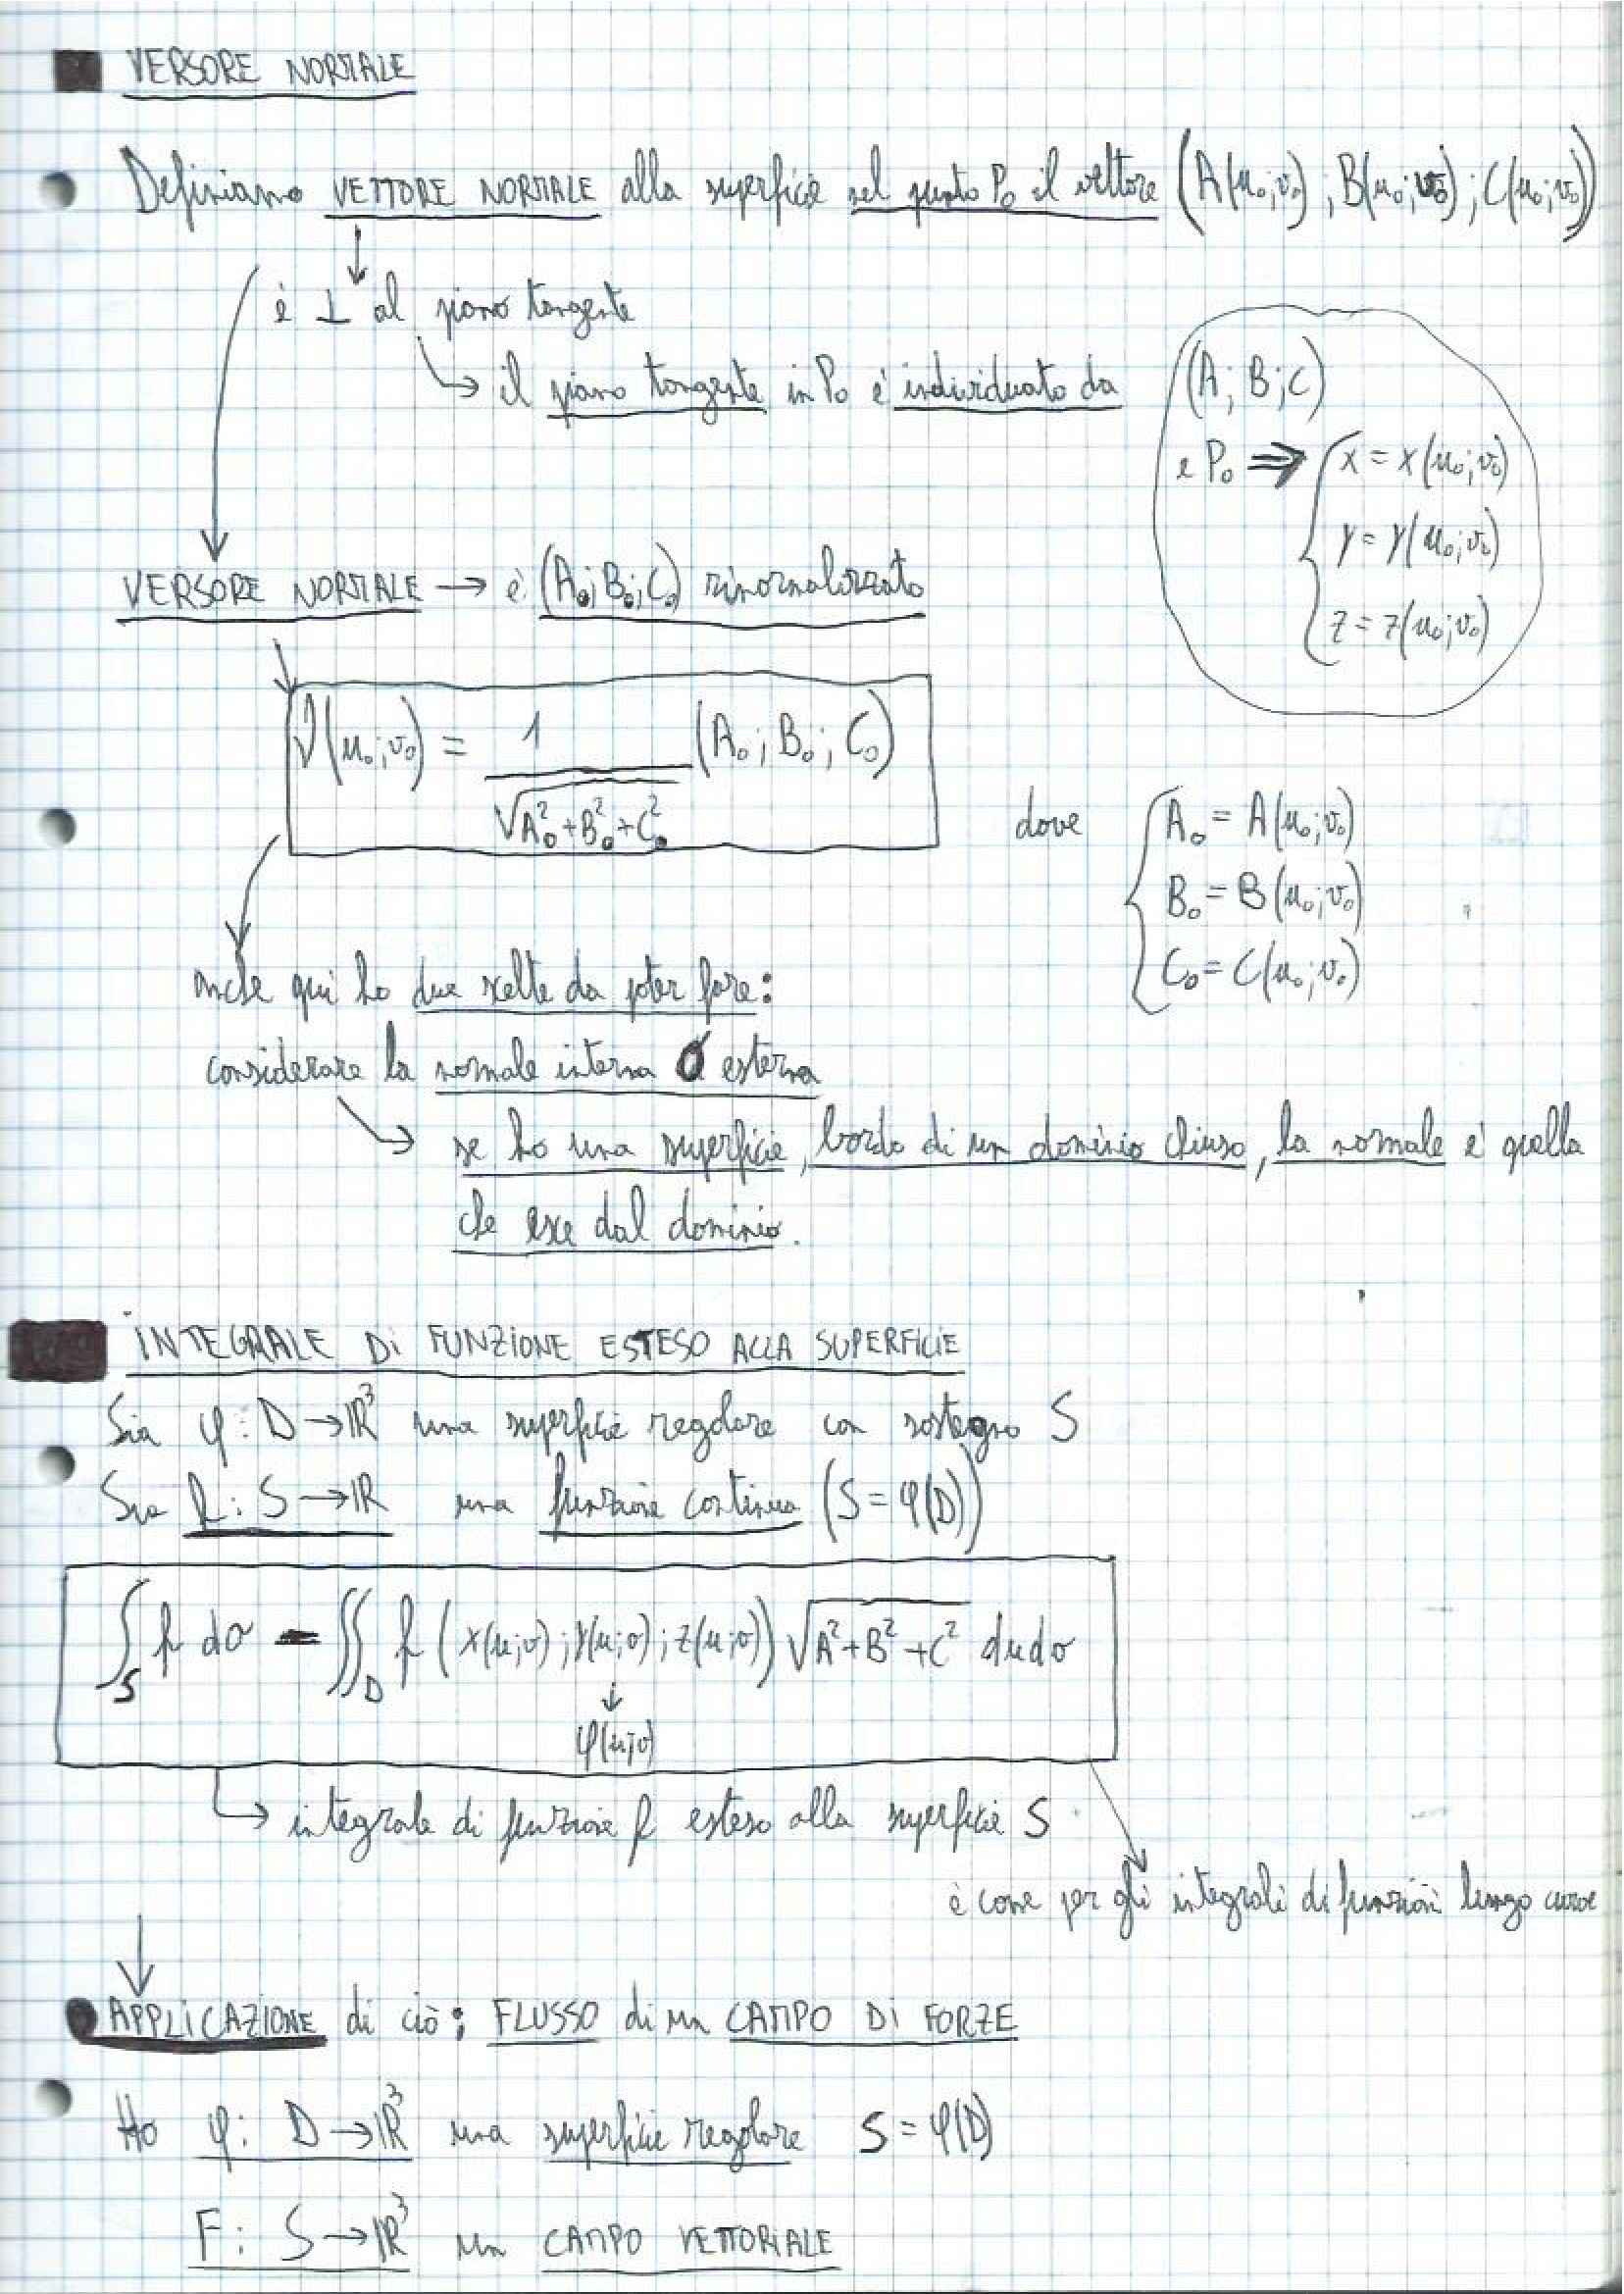 VERSORE NORMALE
Definiamo VETTORE NORMALE alla superficie nel punto P₀ il vettore (A(u₀;v₀); B(u₀;v₀); C(u₀;v₀))
è ⊥ al piano tangente
↳ il piano tangente in P₀ è individuato da
(A; B; C)
e P₀ ⇒ { x = x(u₀;v₀)
y = y(u₀;v₀)
z = z(u₀;v₀)
VERSORE NORMALE → è (A₀; B₀; C₀) rinormalizzato
ν(u₀;v₀) = 1 / √(A₀² + B₀² + C₀²) (A₀; B₀; C₀)
dove { A₀ = A(u₀;v₀)
B₀ = B(u₀;v₀)
C₀ = C(u₀;v₀)
anche qui ho due scelte da poter fare:
considerare la normale interna O esterna
→ se ho una superficie, bordo di un dominio chiuso, la normale è quella
che esce dal dominio.
INTEGRALE DI FUNZIONE ESTESO ALLA SUPERFICIE
Sia φ: D → ℝ³ una superficie regolare con sostegno S
Sia f: S → ℝ una funzione continua (S = φ(D))
∫_S f dσ = ∬_D f (x(u;v); y(u;v); z(u;v)) √(A² + B² + C²) du dv
↓
φ(u;v)
↳ integrale di funzione f esteso alla superficie S
è come per gli integrali di funzioni lungo curve
APPLICAZIONE di ciò: FLUSSO di un CAMPO DI FORZE
Ho φ: D → ℝ³ una superficie regolare S = φ(D)
F: S → ℝ³ un CAMPO VETTORIALE